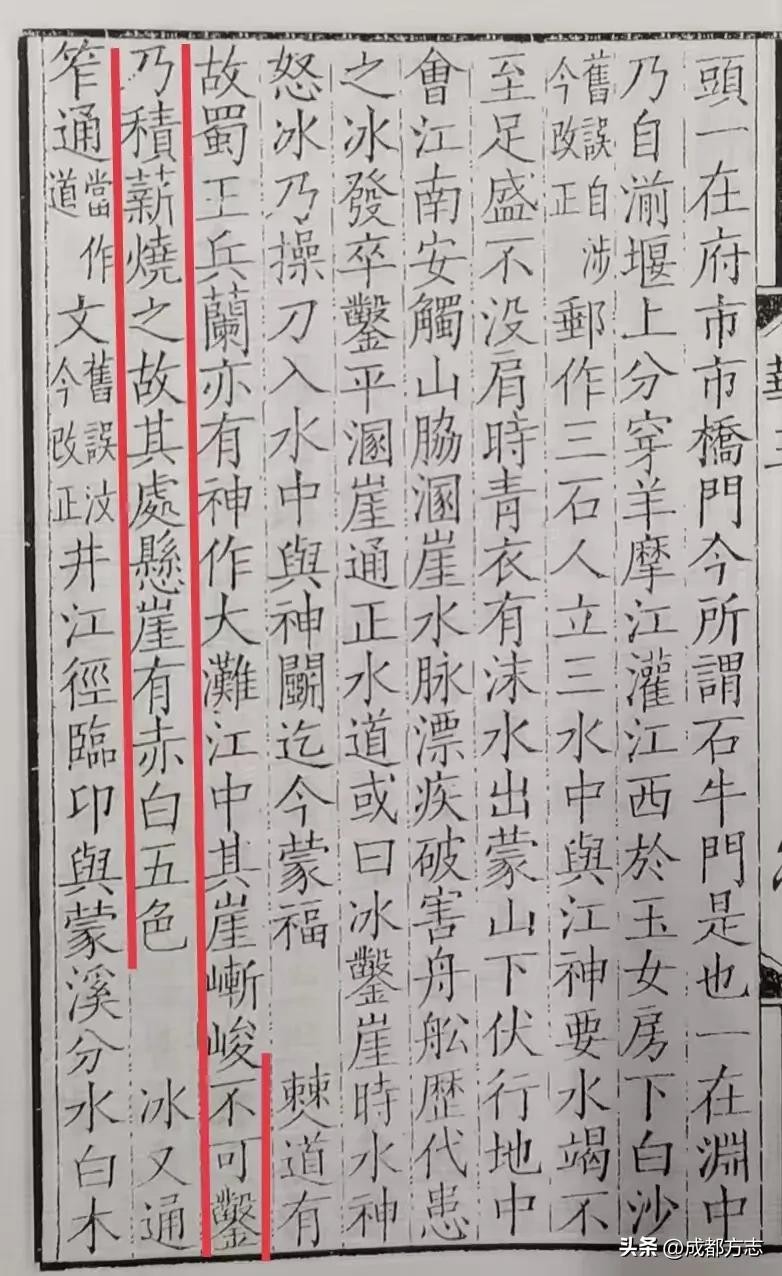 頭一在府市市橋門今所謂石牛門是也一在淵中
乃自湔堰上分穿羊摩江灌江西於玉女房下白沙
舊誤自涉今改正郵作三石人立三水中與江神要水竭不
至足盛不没肩時青衣有沬水出蒙山下伏行地中
會江南安觸山脇溷崖水脉漂疾破害舟舩歴代患
之冰發卒鑿平溷崖通正水道或曰冰鑿崖時水神
怒冰乃操刀入水中與神鬭迄今蒙福 僰道有
故蜀王兵蘭亦有神作大灘江中其崖嶃峻不可鑿
乃積薪燒之故其處懸崖有赤白五色 冰又通
笮通當作道文舊誤汶今改正井江徑臨卭與蒙溪分水白木
头条 @成都方志